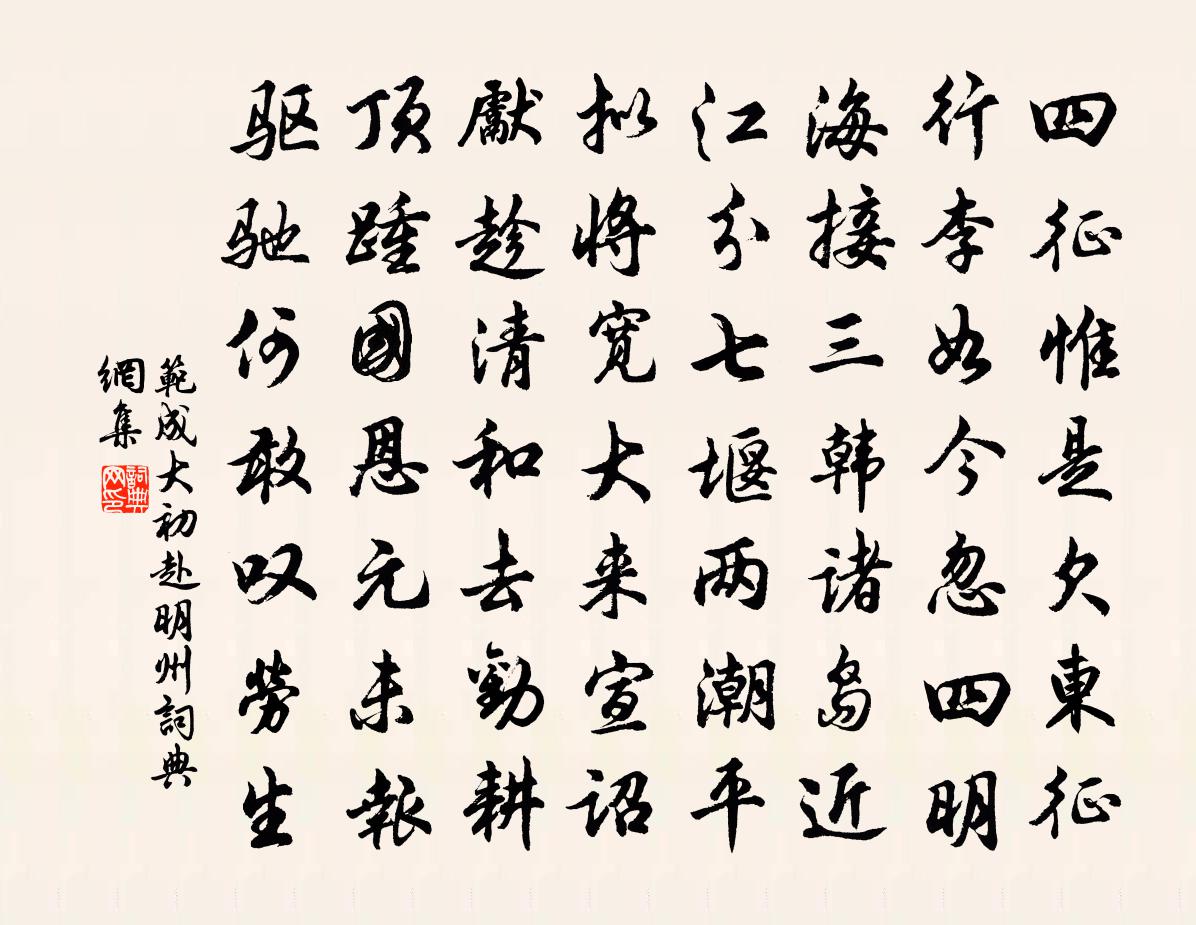 四征惟是欠東征
行李如今忽四明
海接三韩诸岛近
江分七堰两潮平
拟将宽大来宣诏
獻趁清和去勸耕
顶踵國恩元未報
驱驰何敢叹勞生
範成大初赴明州詞典
網集
詞典网印